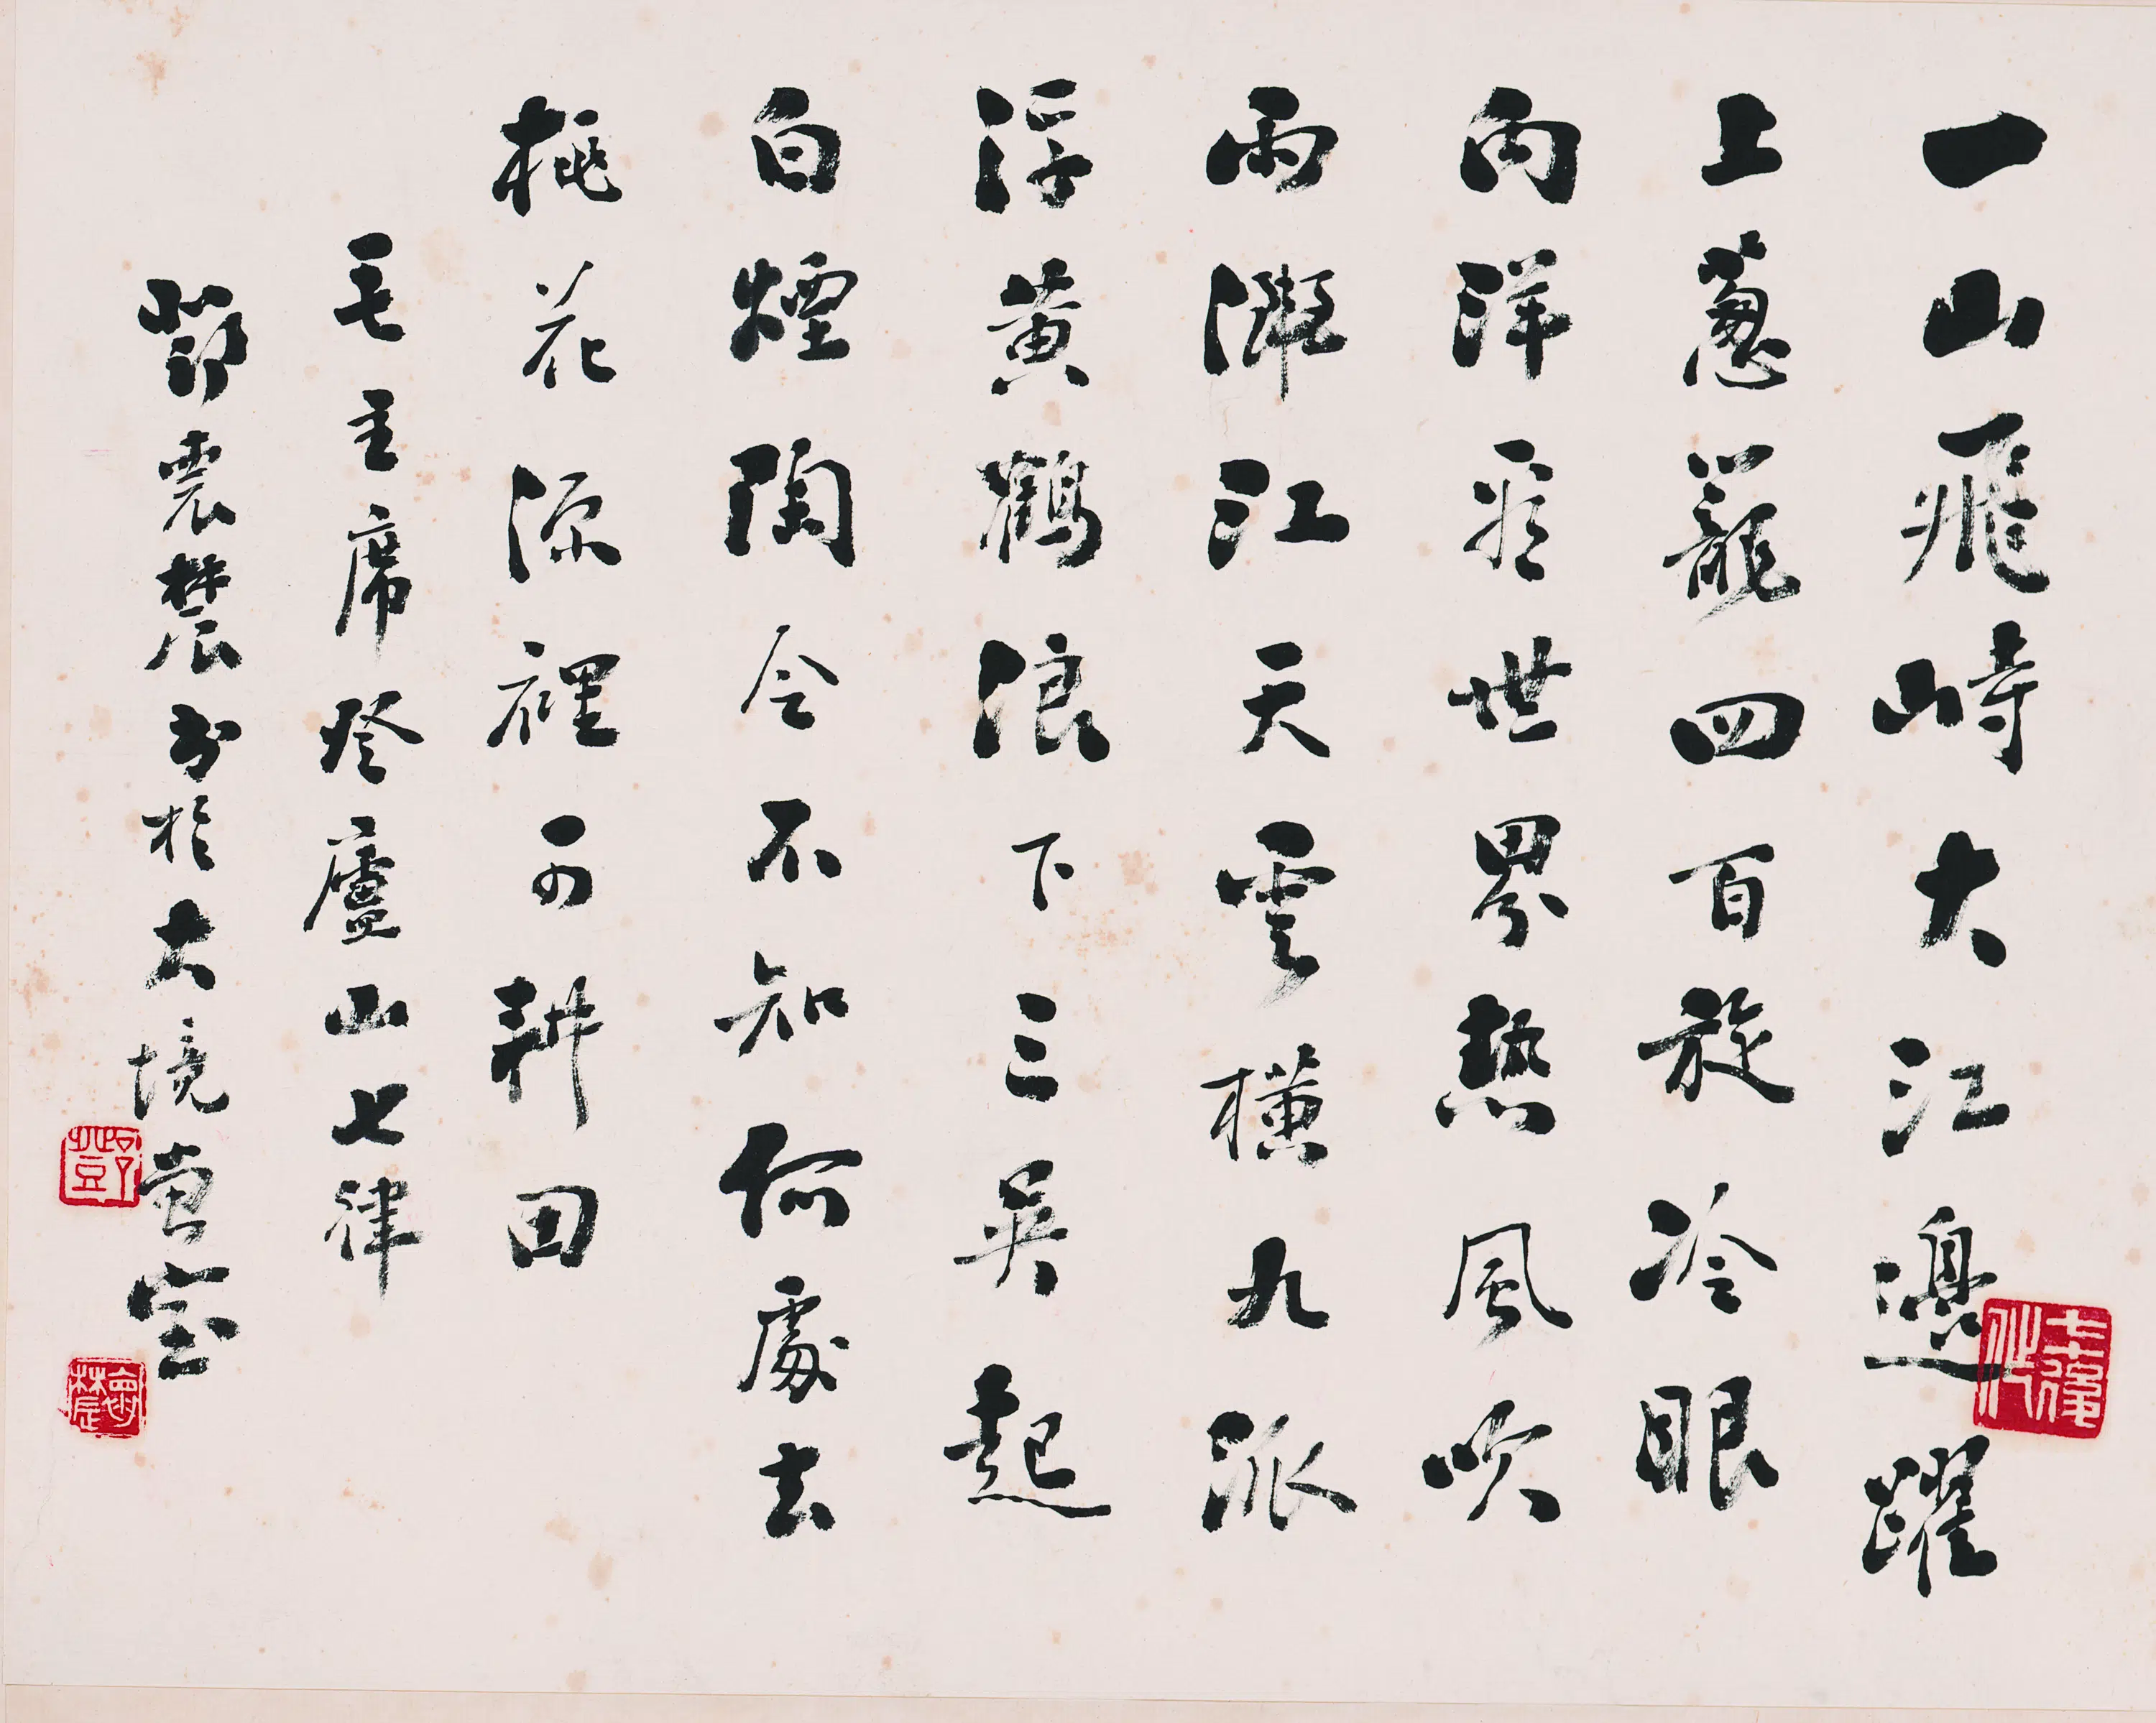 一山飛峙大江邊躍
上葱蘢四百旋冷眼
向洋看世界熱風吹
雨灑江天雲橫九派
浮黃鶴浪下三吳起
白煙陶令不知何處去
桃花源裡可耕田
毛主席登廬山七律
鄧褱農书於大境畫室
七十後作
鄧